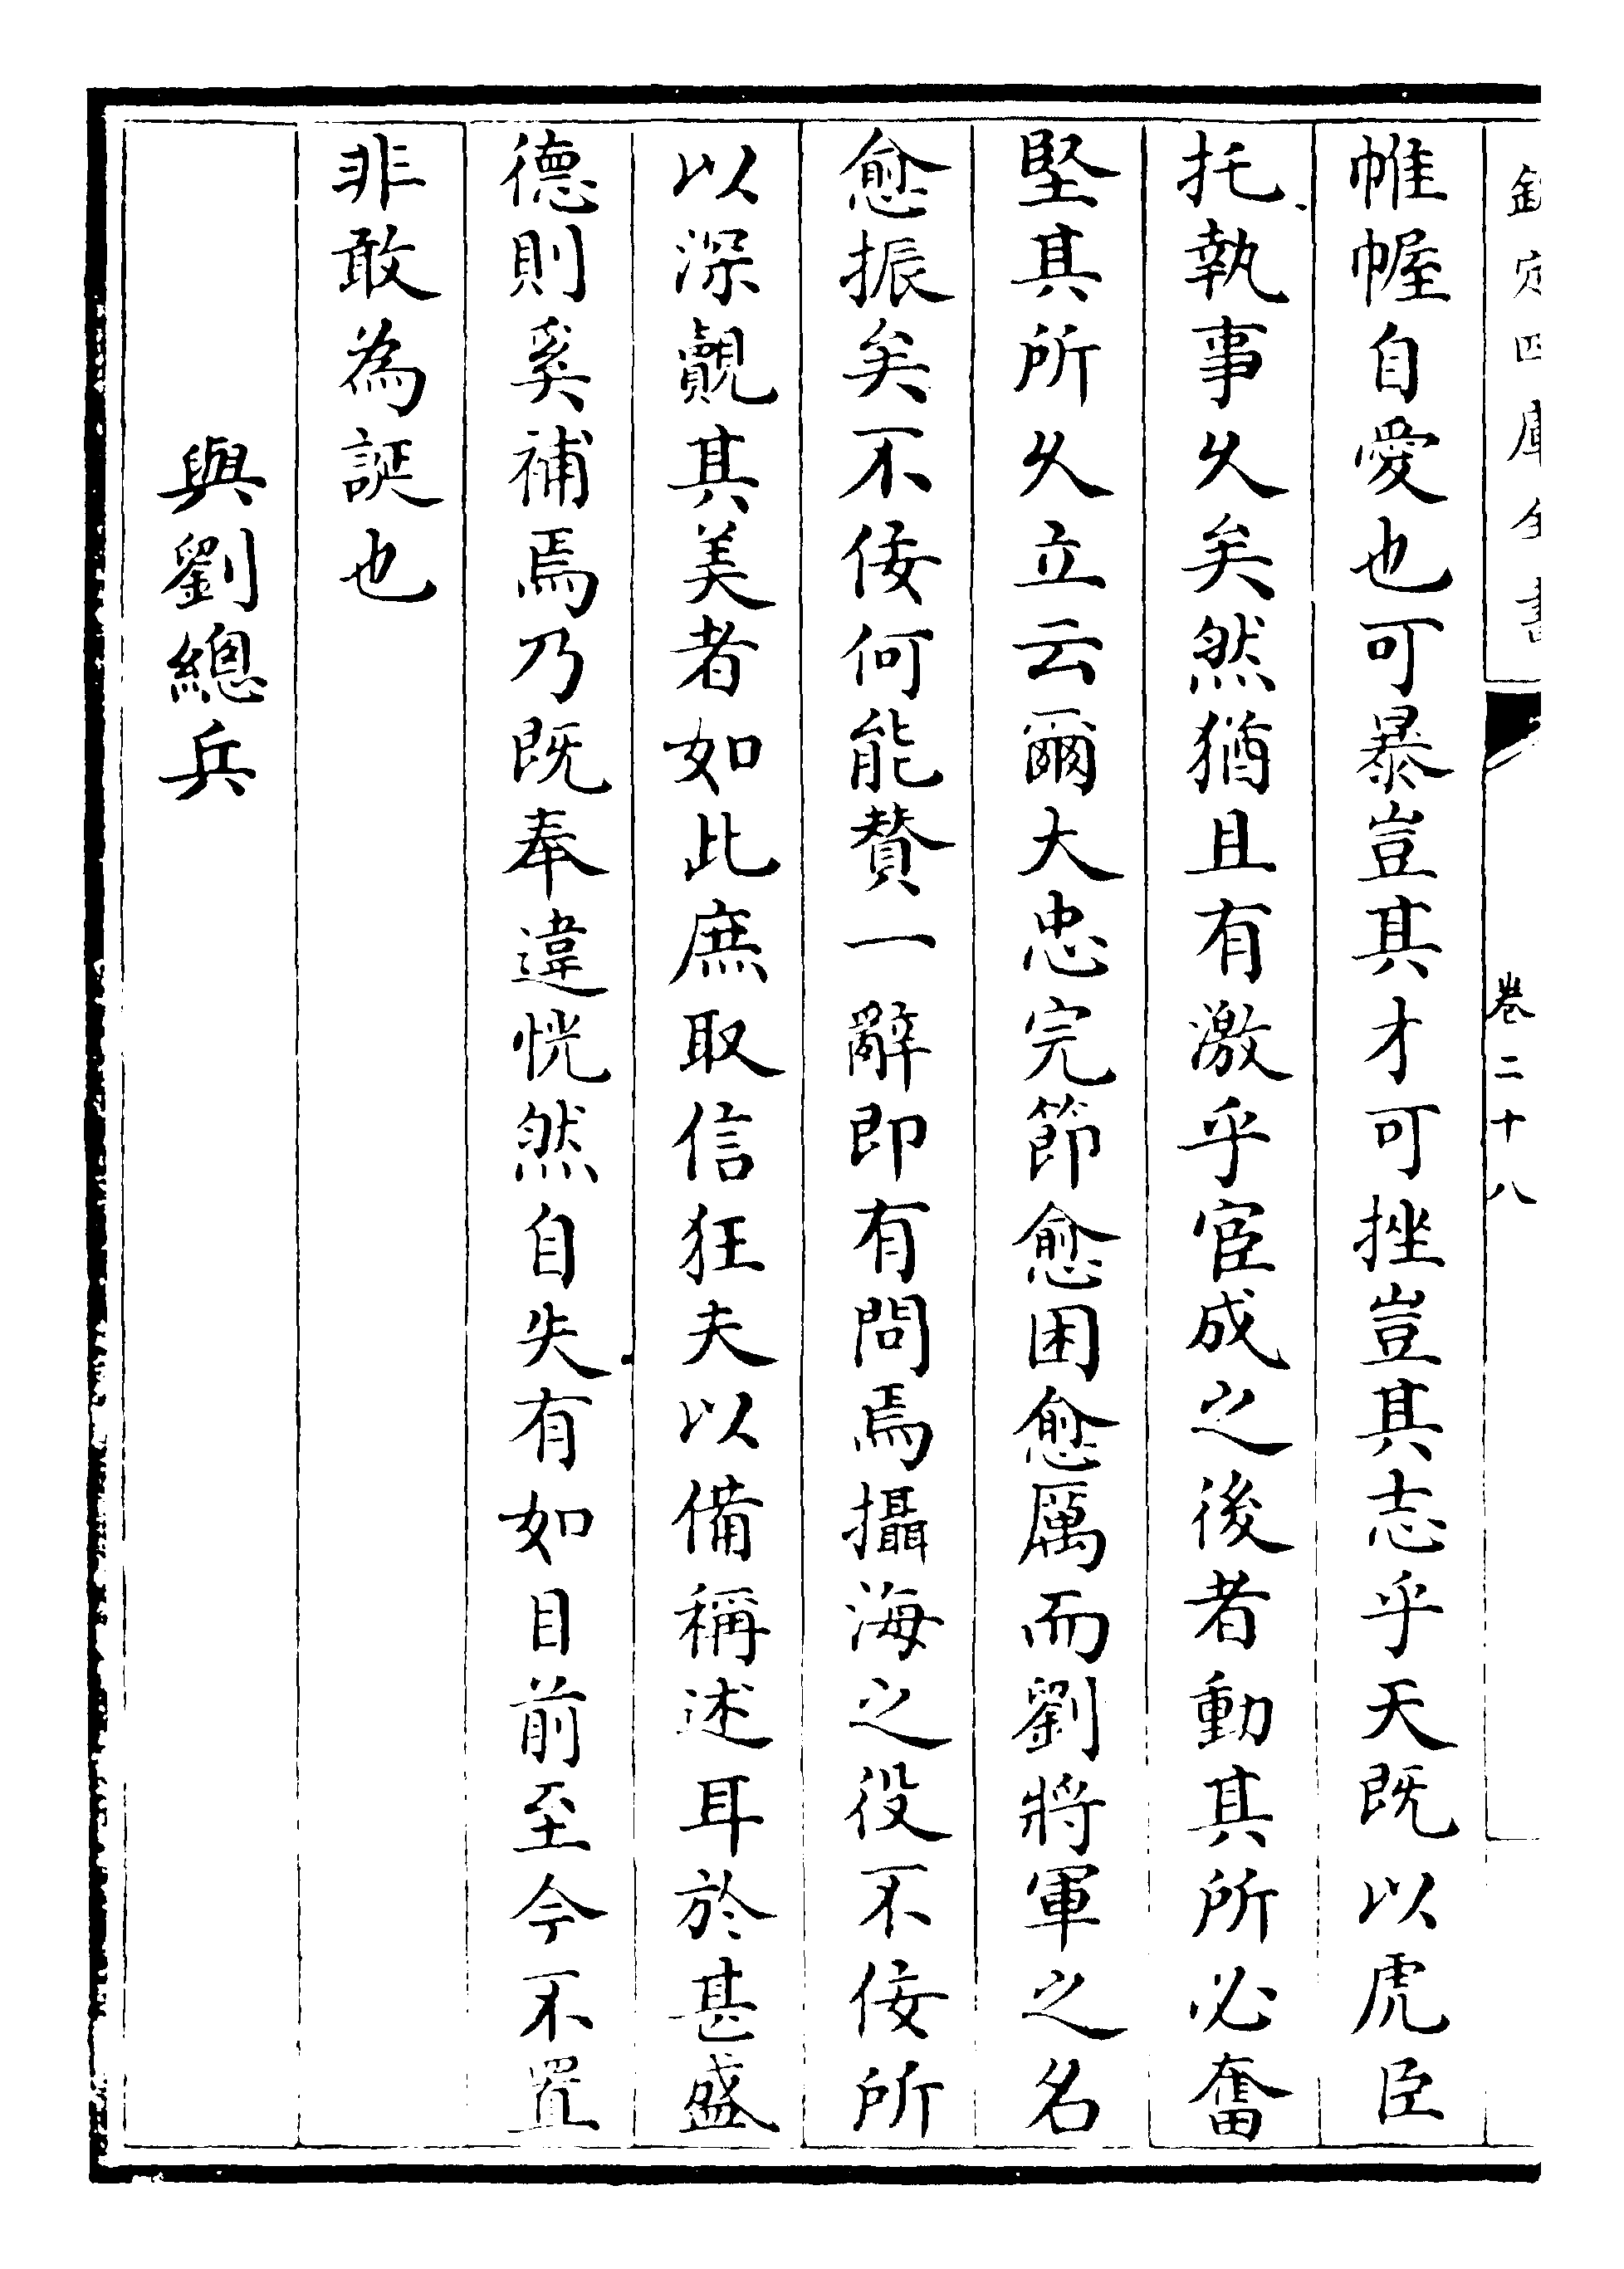 欽定四庫全書
卷二十八
帷幄自愛也可暴豈其才可挫豈其志乎天既以虎臣
托執事久矣然猶且有激乎宦成之後者動其所必奮
堅其所久立云爾大忠完節愈困愈厲而劉將軍之名
愈振矣不佞何能贊一辭即有問焉攝海之役不佞所
以深覿其美者如此庶取信狂夫以備稱述耳於甚盛
德則奚補焉乃既奉違恍然自失有如目前至今不置
非敢為誕也
與劉總兵